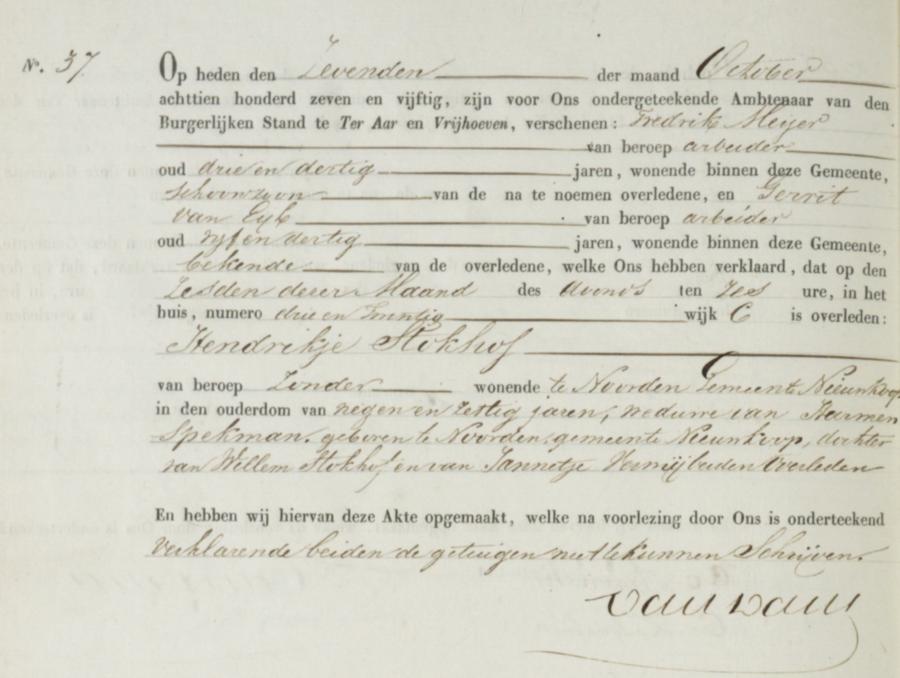 No. 37 Op heden den Zevenden der maand October
achttien honderd zeven en vijftig, zijn voor Ons ondergeteekende Ambtenaar van den
Burgerlijken Stand te Ter Aar en Vrijhoeven, verschenen: Fredrik Meijer
van beroep arbeider
oud drie en dertig jaren, wonende binnen deze Gemeente,
schoonzoon van de na te noemen overledene, en Gerrit
van Eyk van beroep arbeider
oud vyf en dertig jaren, wonende binnen deze Gemeente,
bekende van de overledene, welke Ons hebben verklaard, dat op den
Zesden dezer Maand des avonds ten zes ure, in het
huis, numero drie en Twintig wijk C is overleden:
Hendrikje Stokhof
van beroep Zonder wonende te Noorden Gemeente Nieuwkoop
in den ouderdom van negen en zestig jaren, weduwe van Harmen
Spekman. geboren te Noorden, gemeente Nieuwkoop, dochter
van Willem Stokhof en van Jannetje beiden overleden
En hebben wij hiervan deze Akte opgemaakt, welke na voorlezing door Ons is onderteekend
verklarende beiden de getuigen niet te kunnen Schrijven.